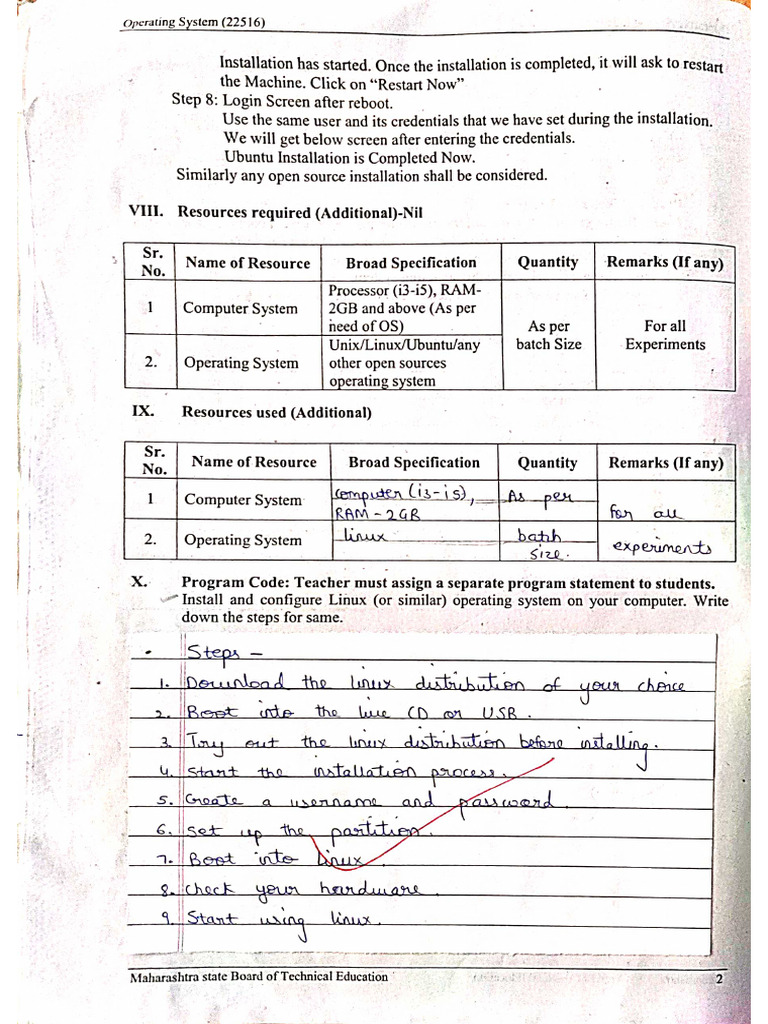 Operating System (22516)
Installation has started. Once the installation is completed, it will ask to restart
the Machine. Click on “Restart Now”
Step 8: Login Screen after reboot.
Use the same user and its credentials that we have set during the installation.
We will get below screen after entering the credentials.
Ubuntu Installation is Completed Now.
Similarly any open source installation shall be considered.
VIII. Resources required (Additional)-Nil
Sr. No. Name of Resource Broad Specification Quantity Remarks (If any)
1 Computer System Processor (i3-i5), RAM-
2GB and above (As per
need of OS)
As per
batch Size
For all
Experiments
2. Operating System Unix/Linux/Ubuntu/any
other open sources
operating system
IX. Resources used (Additional)
Sr. No. Name of Resource Broad Specification Quantity Remarks (If any)
1 Computer System computer (i3-i5),
RAM-2GB
As per
for all
2. Operating System linux batch
size.
experiments
X. Program Code: Teacher must assign a separate program statement to students.
Install and configure Linux (or similar) operating system on your computer. Write
down the steps for same.
• Steps -
1. Download the linux distribution of your choice
2. Boot into the live CD or USB.
3. Try out the linux distribution before installing.
4. Start the installation process.
5. Create a username and password.
6. Set up the partition.
7. Boot into linux.
8. Check your hardware.
9. Start using linux.
Maharashtra state Board of Technical Education 2